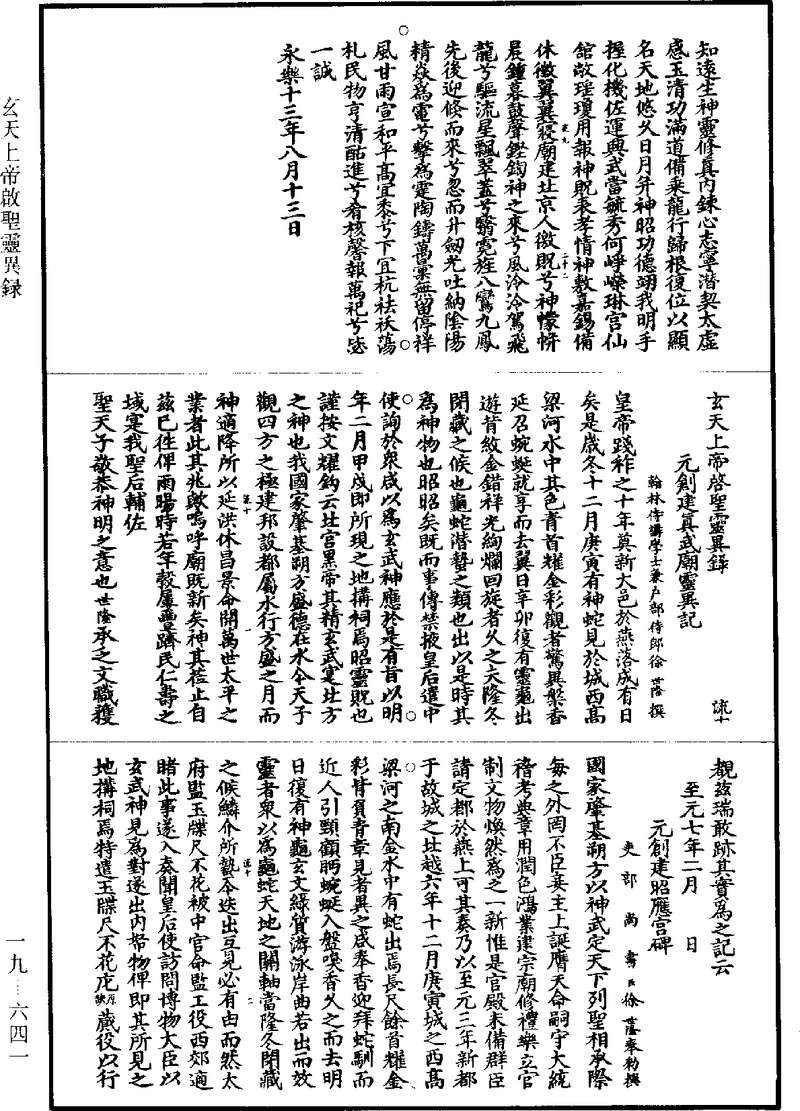 玄天上帝啟聖靈異録
知遠生神靈修真内鍊心志寧潛契太虚
感玉清功滿道備乗龍行歸根復位以顯
名天地悠久日月并神昭功德翊我明手
握化機佐運興武當毓秀何崢嶸琳宫仙
館敞瑶瓊用報神貺秉孝情神敷嘉錫備
休徵翼翼寝廟建北京人徼貺兮神幪帡
晨鍾暮鼓聲鏗鍧神之來兮風泠泠駕飛
龍兮驅流星飄翠蓋兮翳霓旌八鸞九鳳
先後迎倏而來兮忽而升劒光吐納陰陽
精焱為電兮擊為霆陶鑄萬彙無留停祥
風甘雨宣和平高宜黍兮下宜杭祛袄蕩
札民物亨清酤進兮肴核馨報萬祀兮毖
一誠
永樂十三年八月十三日
玄天上帝啓聖靈異錄
流十
元創建真武廟靈異記
翰林侍講學士兼户部侍郎徐世隆撰
皇帝踐祚之十年奠新大邑於燕落成有日
矣是歳冬十二月庚寅有神蛇見於城西高
梁河水中其色青首耀金彩觀者驚異槃香
延召蜿蜒就享而去翼日辛卯復有靈龜出
遊背紋金錯祥光絢爛回旋者久之夫隆冬
閉藏之候也龜蛇潜蟄之類也出以是時其
為神物也昭昭矣既而事傳禁掖皇后遣中
使詢於衆咸以為玄武神應於是有旨以明
年二月甲戌即所現之地搆祠焉昭靈貺也
謹按文耀鈎云北宫黒帝其精玄武寔北方
之神也我國家肇基朔方盛德在水今天子
觀四方之極建邦設都屬水行方盛之月而
神適降所以延洪休昌景命開萬世太平之
業者此其兆歟嗚呼廟既新矣神其莅止自
兹已徃俾雨暘時若年穀屢豐躋民仁壽之
域寔我聖后輔佐
聖天子敬恭神明之意也世隆承乏文職獲
覩兹瑞敢跡其實為之記云
至元七年二月　日
元創建昭應宫碑
吏部尚書臣徐世隆奉勑撰
國家肇基朔方以神武定天下列聖相承際
每之外罔不臣妾主上誕膺天命嗣守大統
稽考典章用潤色鴻業建宗廟修禮樂立官
制文物煥然為之一新惟是官殿未備群臣
請定都於燕上可其奏乃以至元三年新都
于故城之北越六年十二月庚寅城之西高
梁河之南金水中有蛇出焉長尺餘首耀金
彩背負青章見者異之咸奉香迎拜蛇馴而
近人引頸顧眄蜿蜒入盤嗅香久之而去明
日復有神龜玄文緑質游泳岸曲若出而效
靈者衆以為龜蛇天地之關軸當隆冬閉藏
之候鱗介所蟄今迭出互見必有由而然太
府監玉牒尺不花被中官命監工役西郊適
睹此事遂入奏聞皇后使訪問博物大臣以
玄武神見為對遂出内帑物俾即其所見之
地搆祠焉特遣玉牒尺不花庀原缺蕆役以行
一九—六四一